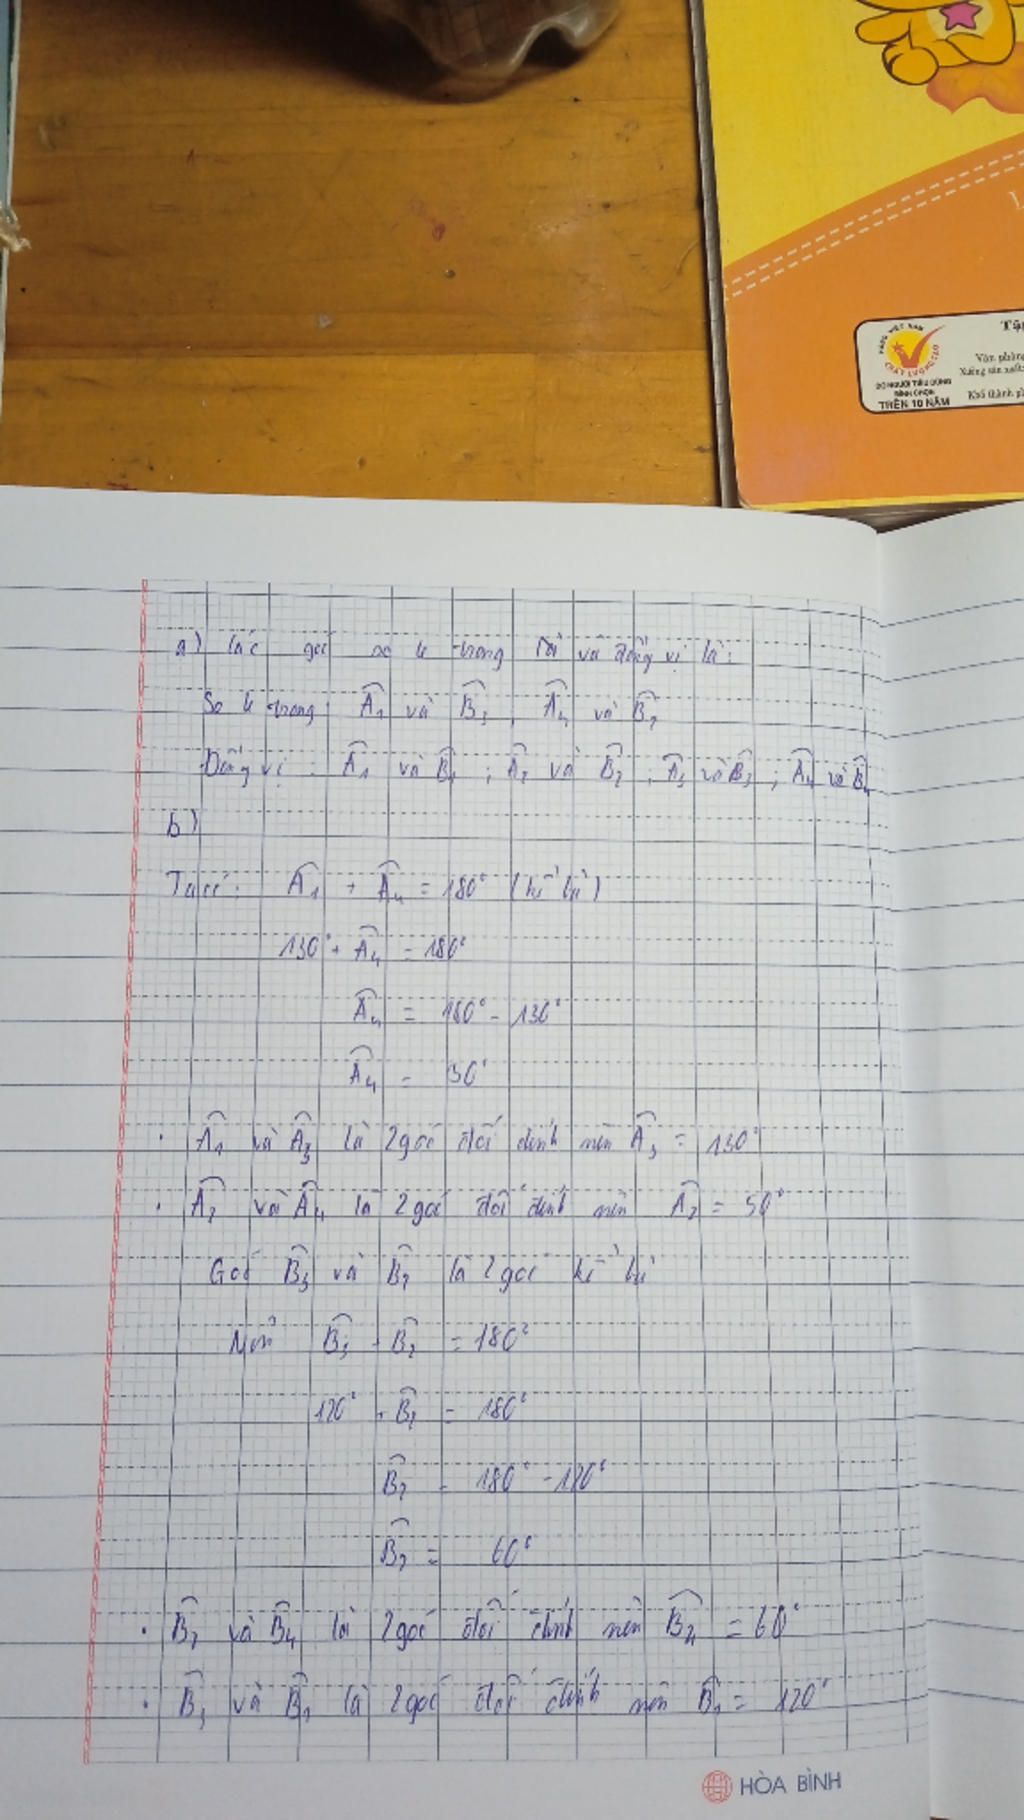 L
HÀNG VIỆT NAM
CHẤT LƯỢNG CAO
DO NGƯỜI TIÊU DÙNG
BÌNH CHỌN
TRÊN 10 NĂM
Tập
Văn phòng
Xưởng sản xuất:
Khố thành ph
a) Các góc so le trong và đồng vị là:
So le trong: Â₁ và B̂₃ ; Â₄ và B̂₂
Đồng vị: Â₁ và B̂₁ ; Â₂ và B̂₂ ; Â₃ và B̂₃ ; Â₄ và B̂₄
b)
Ta có: Â₁ + Â₄ = 180° (kề bù)
130° + Â₄ = 180°
Â₄ = 180° - 130°
Â₄ = 50°
· Â₁ và Â₃ là 2 góc đối đỉnh nên Â₃ = 130°
· Â₂ và Â₄ là 2 góc đối đỉnh nên Â₂ = 50°
Góc B̂₃ và B̂₂ là 2 góc kề bù
Nên B̂₃ + B̂₂ = 180°
120° + B̂₂ = 180°
B̂₂ = 180° - 120°
B̂₂ = 60°
· B̂₂ và B̂₄ là 2 góc đối đỉnh nên B̂₄ = 60°
· B̂₃ và B̂₁ là 2 góc đối đỉnh nên B̂₁ = 120°
HÒA BÌNH